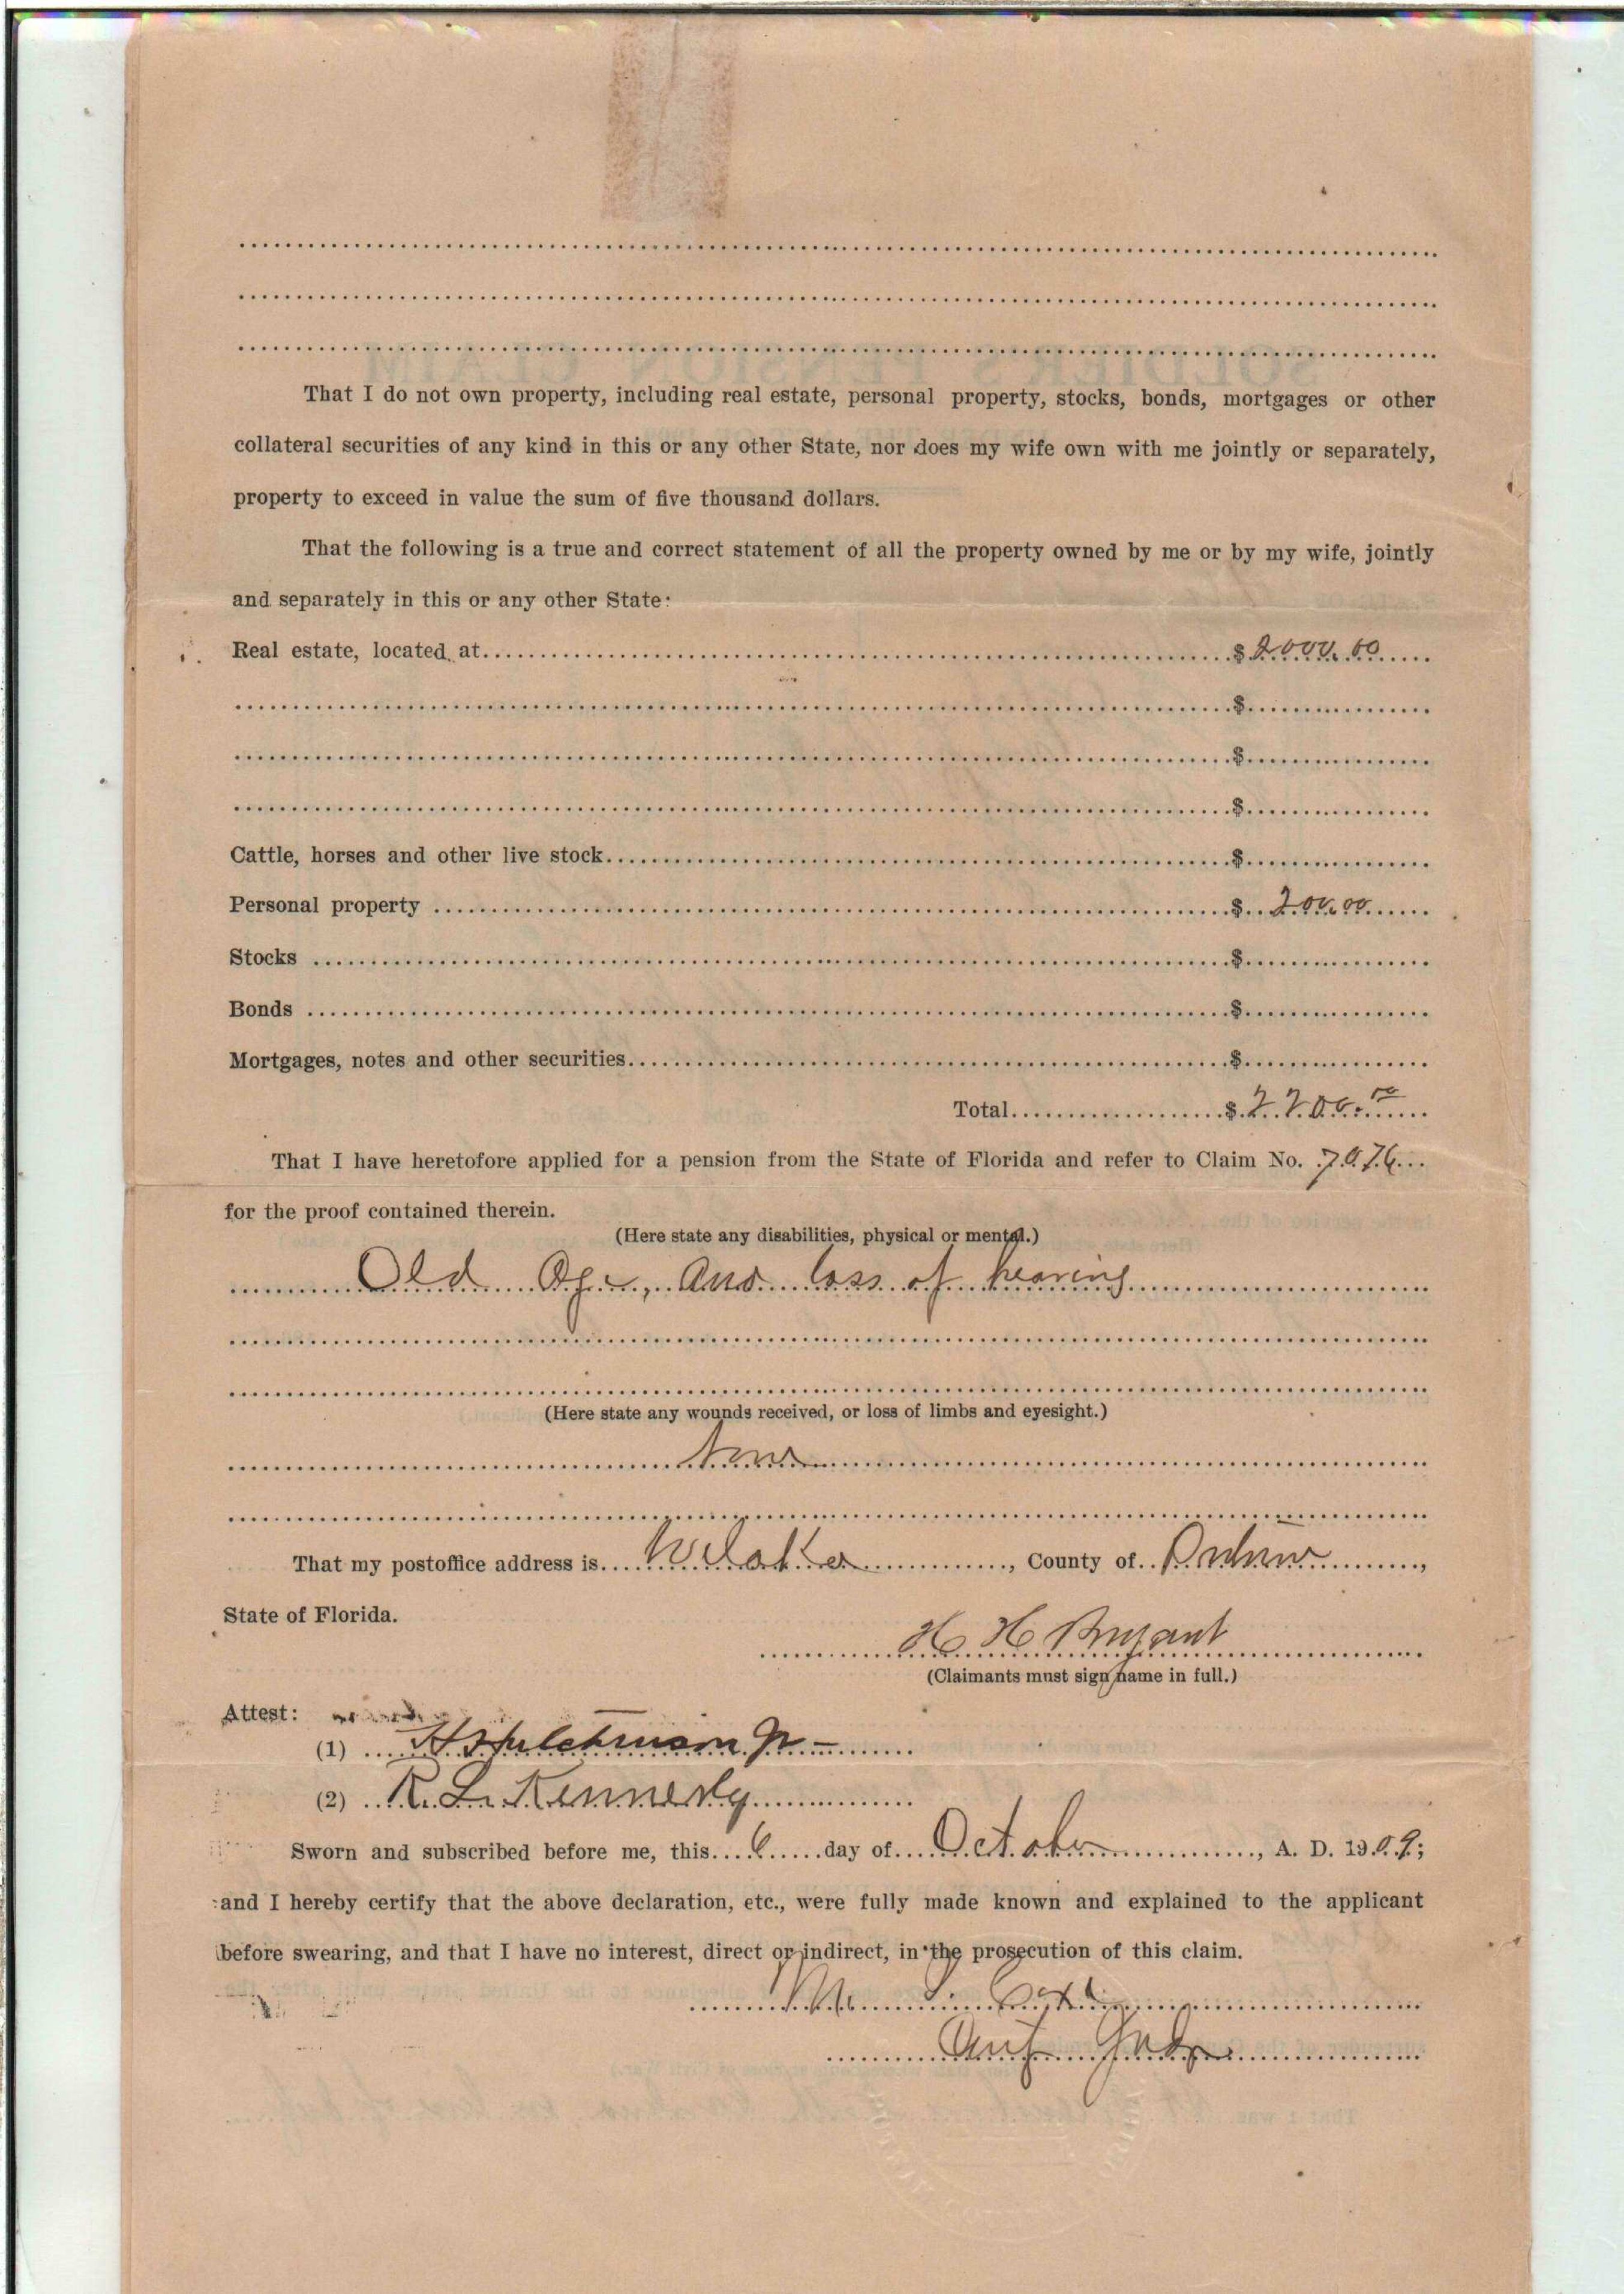 That I do not own property, including real estate, personal property, stocks, bonds, mortgages or other
collateral securities of any kind in this or any other State, nor does my wife own with me jointly or separately,
property to exceed in value the sum of five thousand dollars.
That the following is a true and correct statement of all the property owned by me or by my wife, jointly
and separately in this or any other State:
Real estate, located at $ 2000.00
$
$
$
Cattle, horses and other live stock $
Personal property $ 200.00
Stocks $
Bonds $
Mortgages, notes and other securities $
Total $ 2200.00
That I have heretofore applied for a pension from the State of Florida and refer to Claim No.
for the proof contained therein.
(Here state any disabilities, physical or mental.)
Old Age, and loss of hearing
(Here state any wounds received, or loss of limbs and eyesight.)
That my postoffice address is , County of ,
State of Florida.
H H Bryant
(Claimants must sign name in full.)
Attest:
(1) Hutchinson Jr
(2) R. L. Kennerly
Sworn and subscribed before me, this 6 day of October , A. D. 1909;
and I hereby certify that the above declaration, etc., were fully made known and explained to the applicant
before swearing, and that I have no interest, direct or indirect, in the prosecution of this claim.